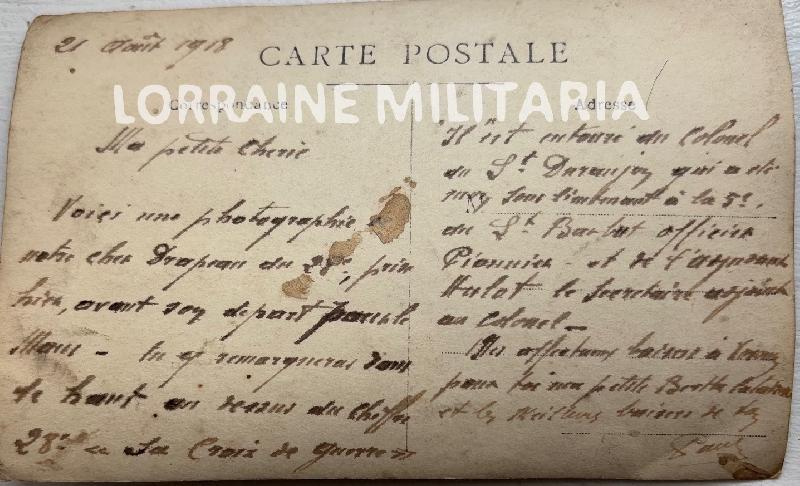 21 Août 1918
CARTE POSTALE
LORRAINE MILITARIA
Correspondance
Adresse
Ma petite Cherie
Voici une photographie
notre cher Drapeau du 28e, prise
hier, avant son départ pour le
Mans - tu y remarqueras dans
le haut au dessus du chiffre
28 la Croix de guerre
Il est entouré du Colonel
du Lt qui a été
sous lieutenant à la 5e,
du Lt Barbat officier
Pionnier - et de l'adjudant
Hulot le secretaire adjoint
au Colonel -
Mes affectueux baisers à
pour toi ma petite
et les meilleurs baisers de ton
Paul